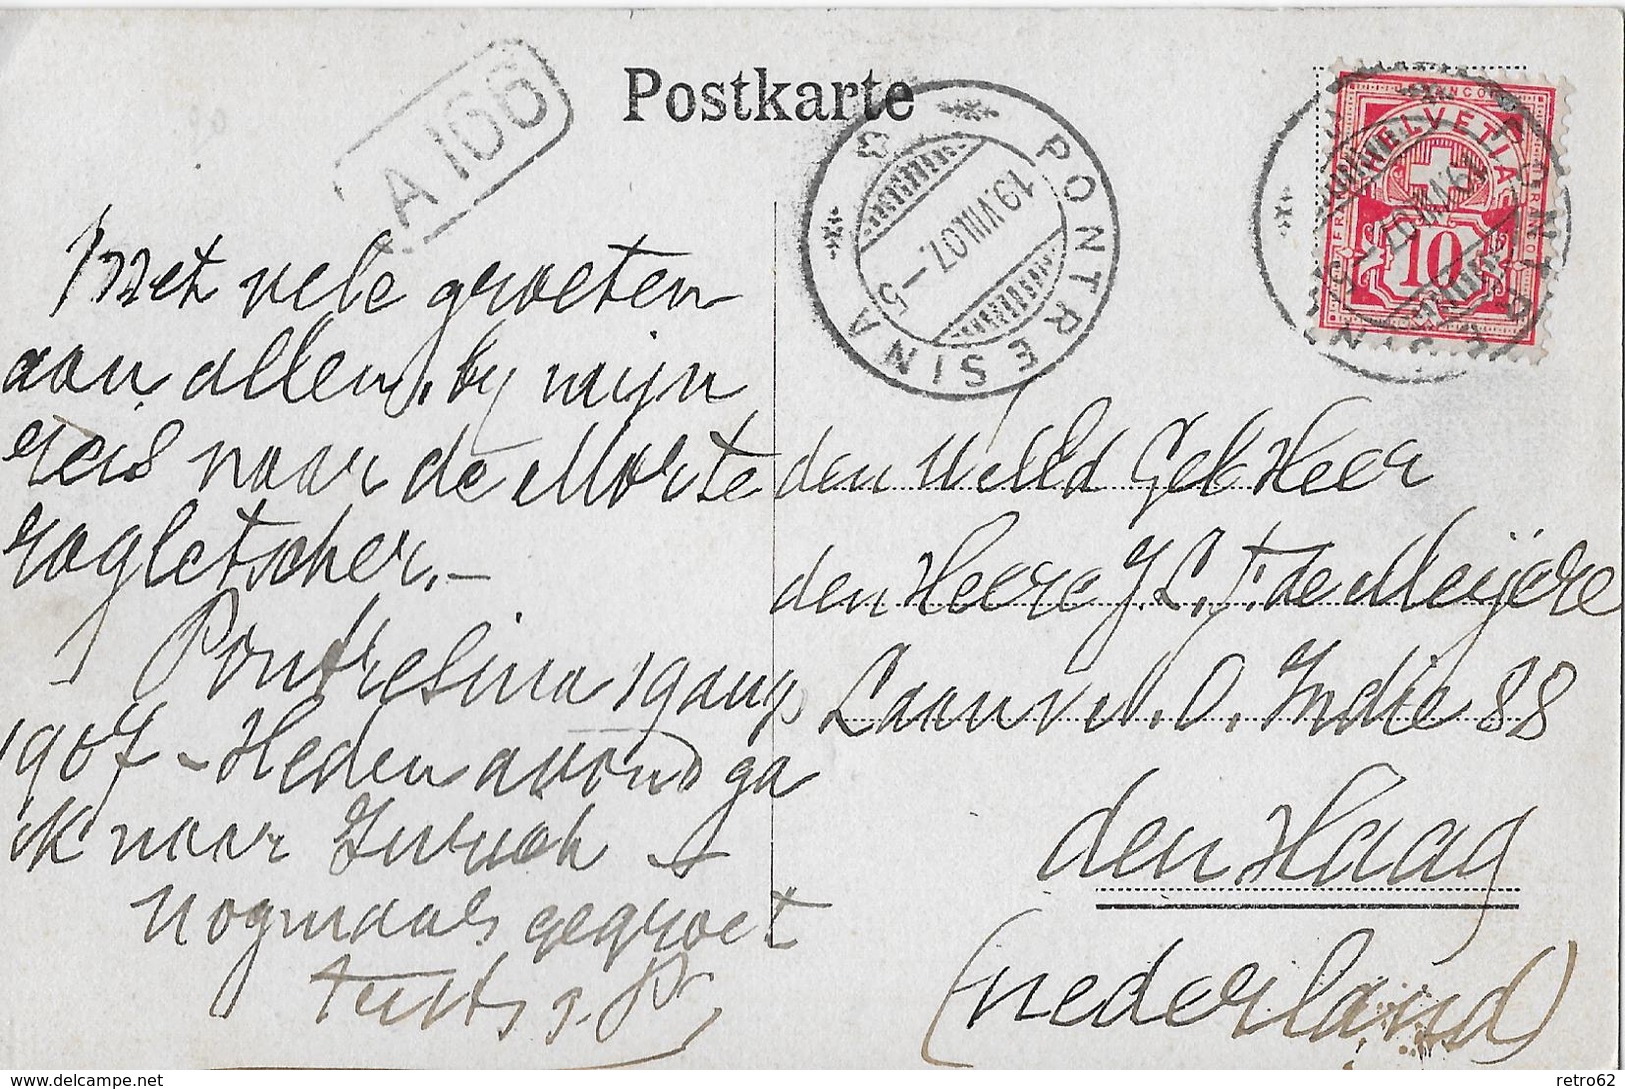 Postkarte
A 166
PONTRESINA
19.VIII.07.–5
HELVETIA
FRANCO
10
Met vele groeten
aan allen, by mijn
reis naar de Morte
ragletscher.–
Pontresina 19 aug
1907 – Heden avond ga
ik naar
nogmaals gegroet
den Heer
den Heere J. L. F. de Meijere
Laan v N. O. Indie 88
den Haag
(nederland)
delcampe.net
retro62